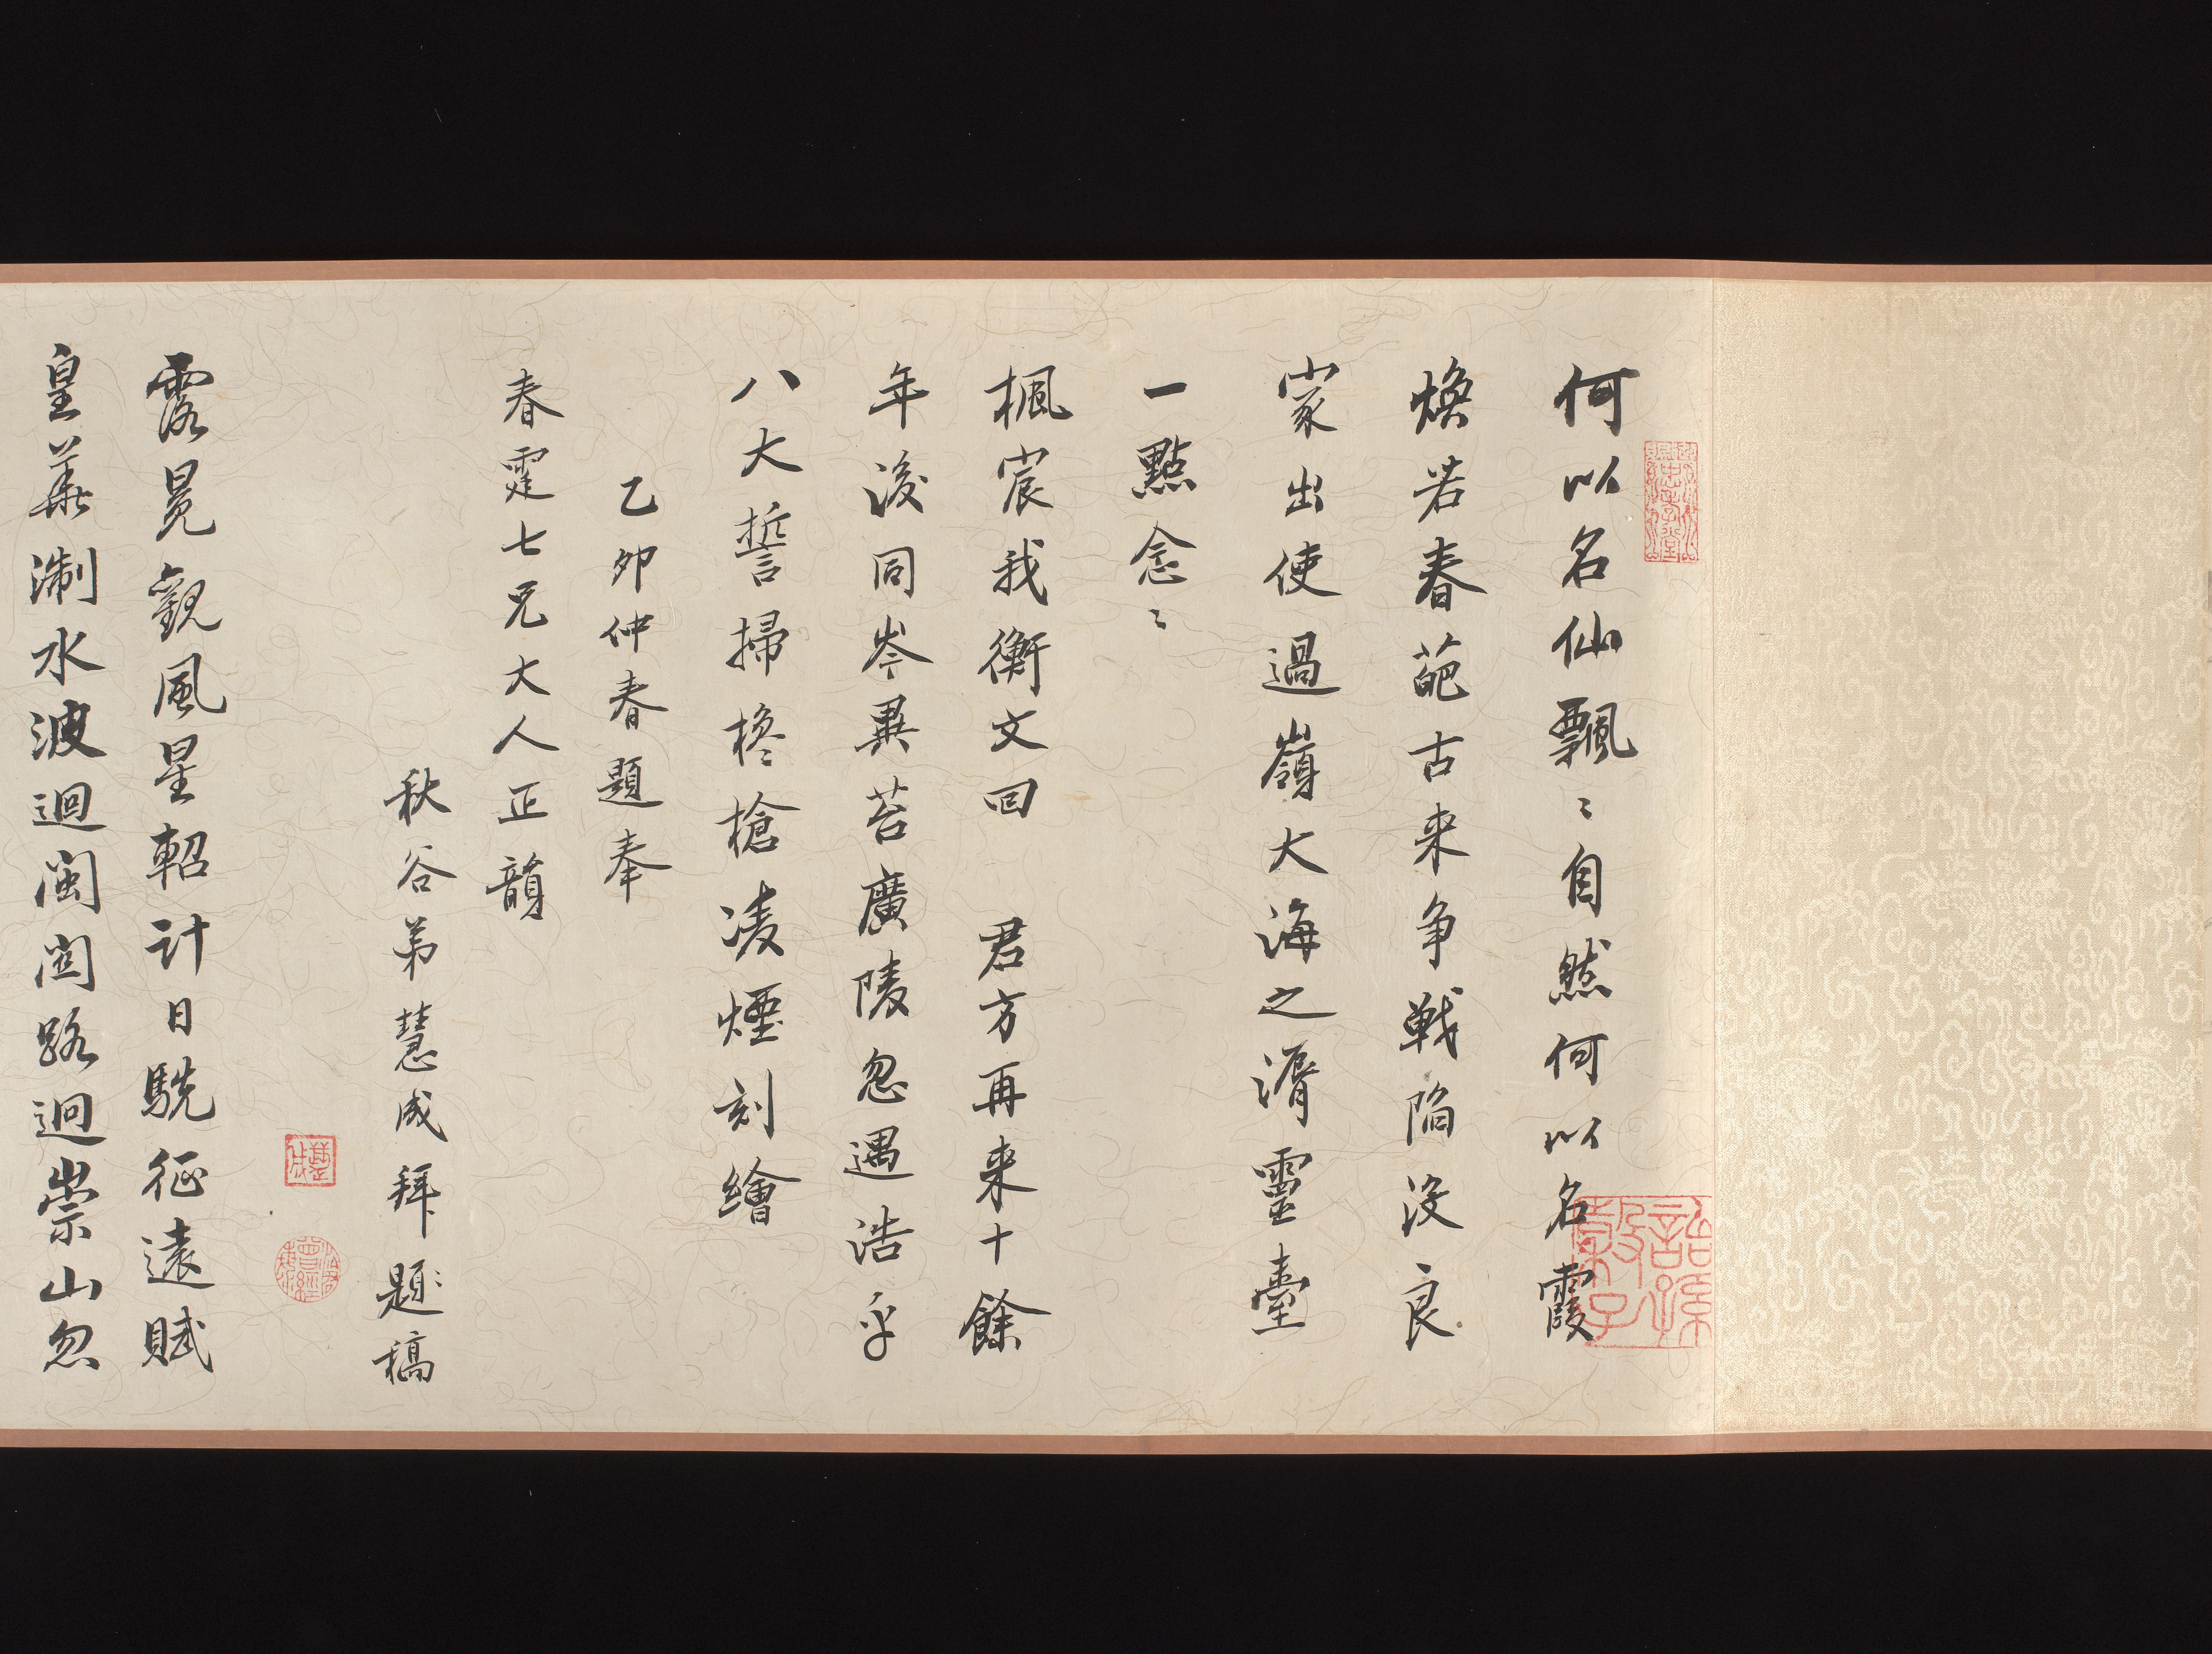 何以名仙飄〻自然何以名霞
煥若春葩古来争戰陷没良
家出使過嶺大海之濱靈臺
一點念〻
楓宸我衡文回 君方再来十餘
年後同岑異苔廣陵忽遇浩乎
八大誓掃欃槍凌煙刻繪
乙卯仲春題奉
春霆七兄大人正韻
秋谷弟慧成拜題稿
露冕觀風星軺计日駪征遠賦
皇華淛水波迴閩闗路迥崇山忽